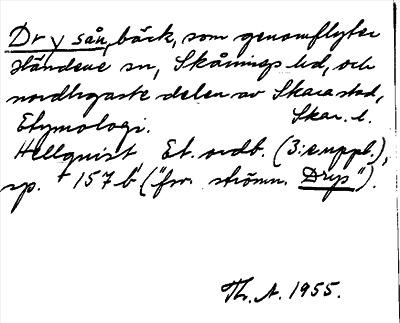 Drysån, bäck, som genomflyter
Händene sn, Skånings hd, och
nordligaste delen av Skara stad,
Etymologi. Skar. l.
Hellquist, Et. ordb. (3:e uppl.),
sp. 157 b ("fsv. strömn. Drys").
Th. A. 1955.